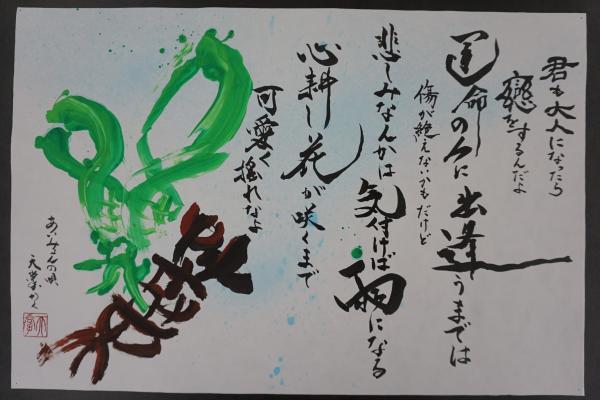 君も大人になったら
戀をするんだよ
運命の人に出逢うまでは
傷が絶えないかもだけど
悲しみなんかは気付けば雨になる
心耕し花が咲くまで
可愛く揺れなよ
あいみょんの唄